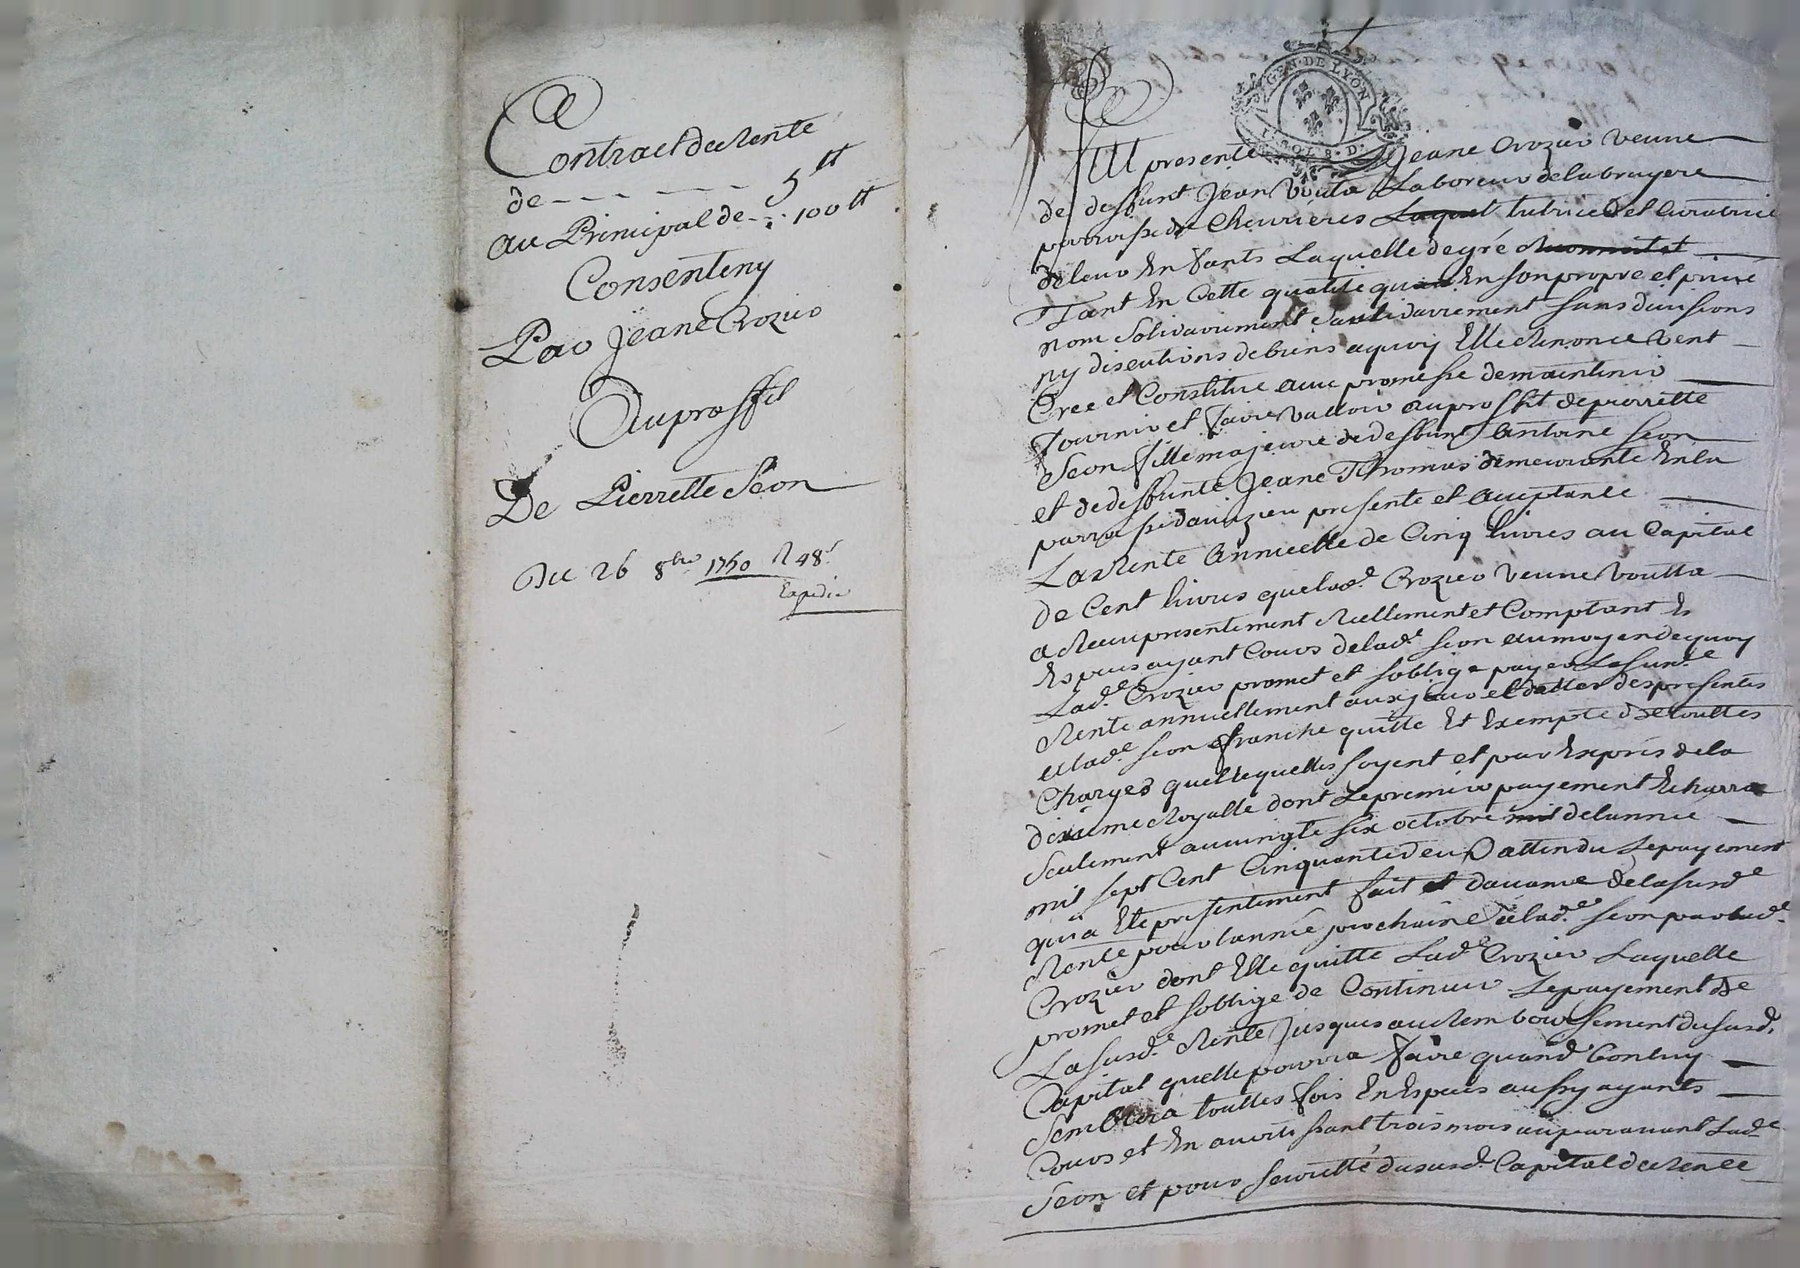 Contract de Rente
de - - - - - - 5 lt
au Principal de - - 100 lt
Consenteny
Par Jeane Crozier
Au proffit
De Pierrette Seon
Du 26 8bre 1750 R 48s
Expédié
GEN · DE LYON
SOLS · D ·
Fut presente Jeane Crozier veuve
de deffunt Jean Vouta Laboreur de la bruyere
parroisse de Chevrieres Laquel tutrice et Curatrice
de leur Enfants Laquelle de gré
Tant En Cette qualité quen En son propre et privé
nom Solidairement sans division
ny discutions de biens aquoy Elle Renonce Vent
Cree et Constitue avec promesse de maintenir
fournir et faire valloir au proffit de pierrette
Seon fille majeure de deffunt Antoine Seon
et de deffunte Jeane Thomas demeurante En la
parroisse d'aveizieu presente et aceptante
La Rente annuelle de Cinq livres au Capital
de Cent livres que lad.e Crozier veuve Voutta
a Receu presentement Reellement et Comptant En
Especes ayant Cours de lad.e Seon au moyen de quoy
Lad.e Crozier promet et soblige payer La susd.e
Rente annuellement aux jour et datte des presentes
a lad.e Seon franche quitte Et Exempte de touttes
Charges quellequelles soyent et par Exprés de la
dixieme Royalle dont Le premier payement Echerra
Seulement au vingt six octobre de lannée
mil sept Cent Cinquante deux attendu Le payement
qu'a Eté presentement fait davance de la susd.e
Rente pour lannée prochaine a lad.e Seon par lad.e
Crozier dont Elle quitte Lad.e Crozier Laquelle
promet et soblige de Continuer Le payement de
La susd.e Rente jusques au Remboursement du susd.
Capital quelle pourra faire quand bon luy
Semblera touttes fois En Especes aussy ayants
Cours et En avertissant trois mois auparavant Lad.e
Seon et pour seuretté du susd. Capital de Rente